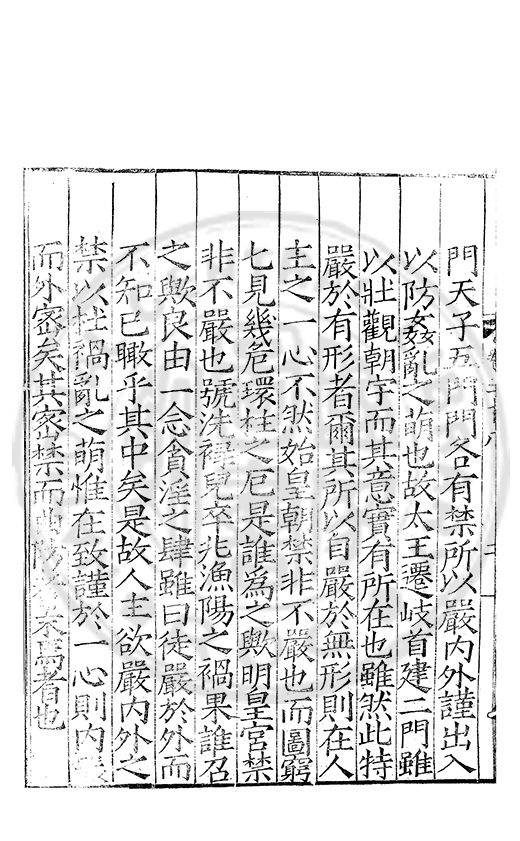 門天子五門門各有禁所以嚴內外謹出入
以防姦亂之萌也故太王遷岐首建二門雖
以壯觀朝宇而其意實有所在也雖然此特
嚴於有形者爾其所以自嚴於無形則在人
主之一心不然始皇朝禁非不嚴也而圖窮
七見幾危環柱之厄是誰為之歟明皇宮禁
非不嚴也號洗祿兒卒兆漁陽之禍果誰召
之歟良由一念貪淫之肆雖曰徒嚴於外而
不知已瞰乎其中矣是故人主欲嚴內外之
禁以杜禍亂之萌惟在致謹於一心則內嚴
而外密矣其密禁而曲防末焉者也